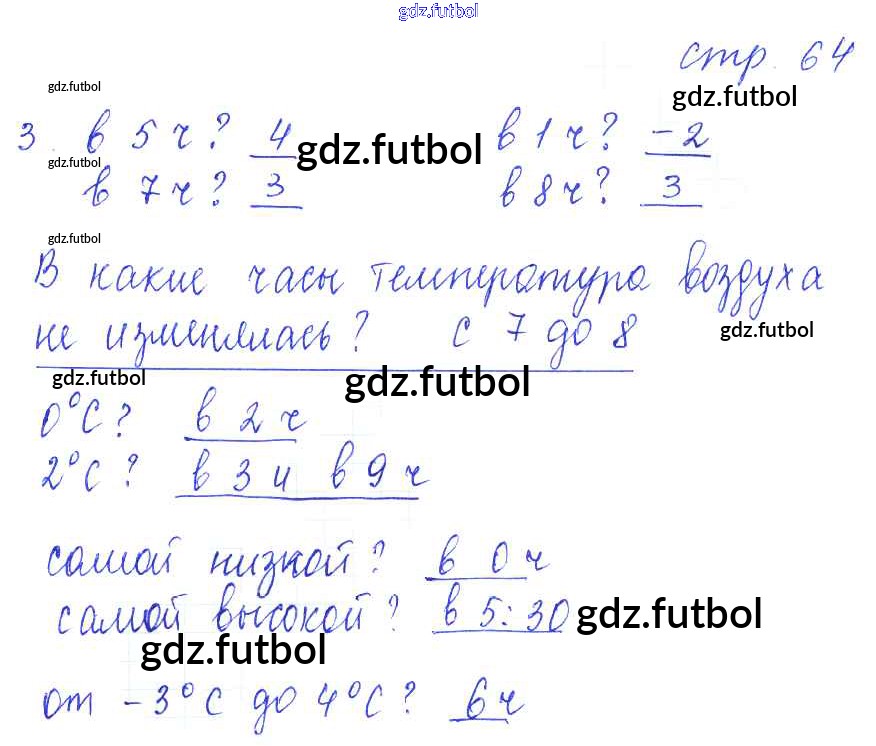 gdz.futbol
стр. 64
gdz.futbol gdz.futbol
3. в 5 ч? 4 gdz.futbol в 1 ч? -2
gdz.futbol
в 7 ч? 3 в 8 ч? 3
gdz.futbol
В какие часы температура воздуха
не изменялась? с 7 до 8 gdz.futbol
gdz.futbol gdz.futbol
0°С? в 2 ч
2°С? в 3 и в 9 ч
самой низкой? в 0 ч
самой высокой? в 5:30 gdz.futbol
gdz.futbol
от -3°С до 4°С? 6 ч